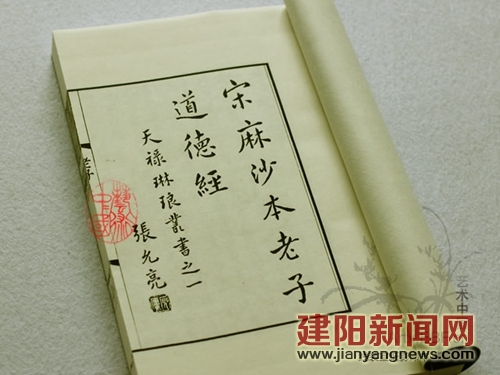 宋麻沙本老子
道德經
天禄琳琅叢書之一
張允亮
老子
艺术中
建阳新闻网
www.jianyangnews.com